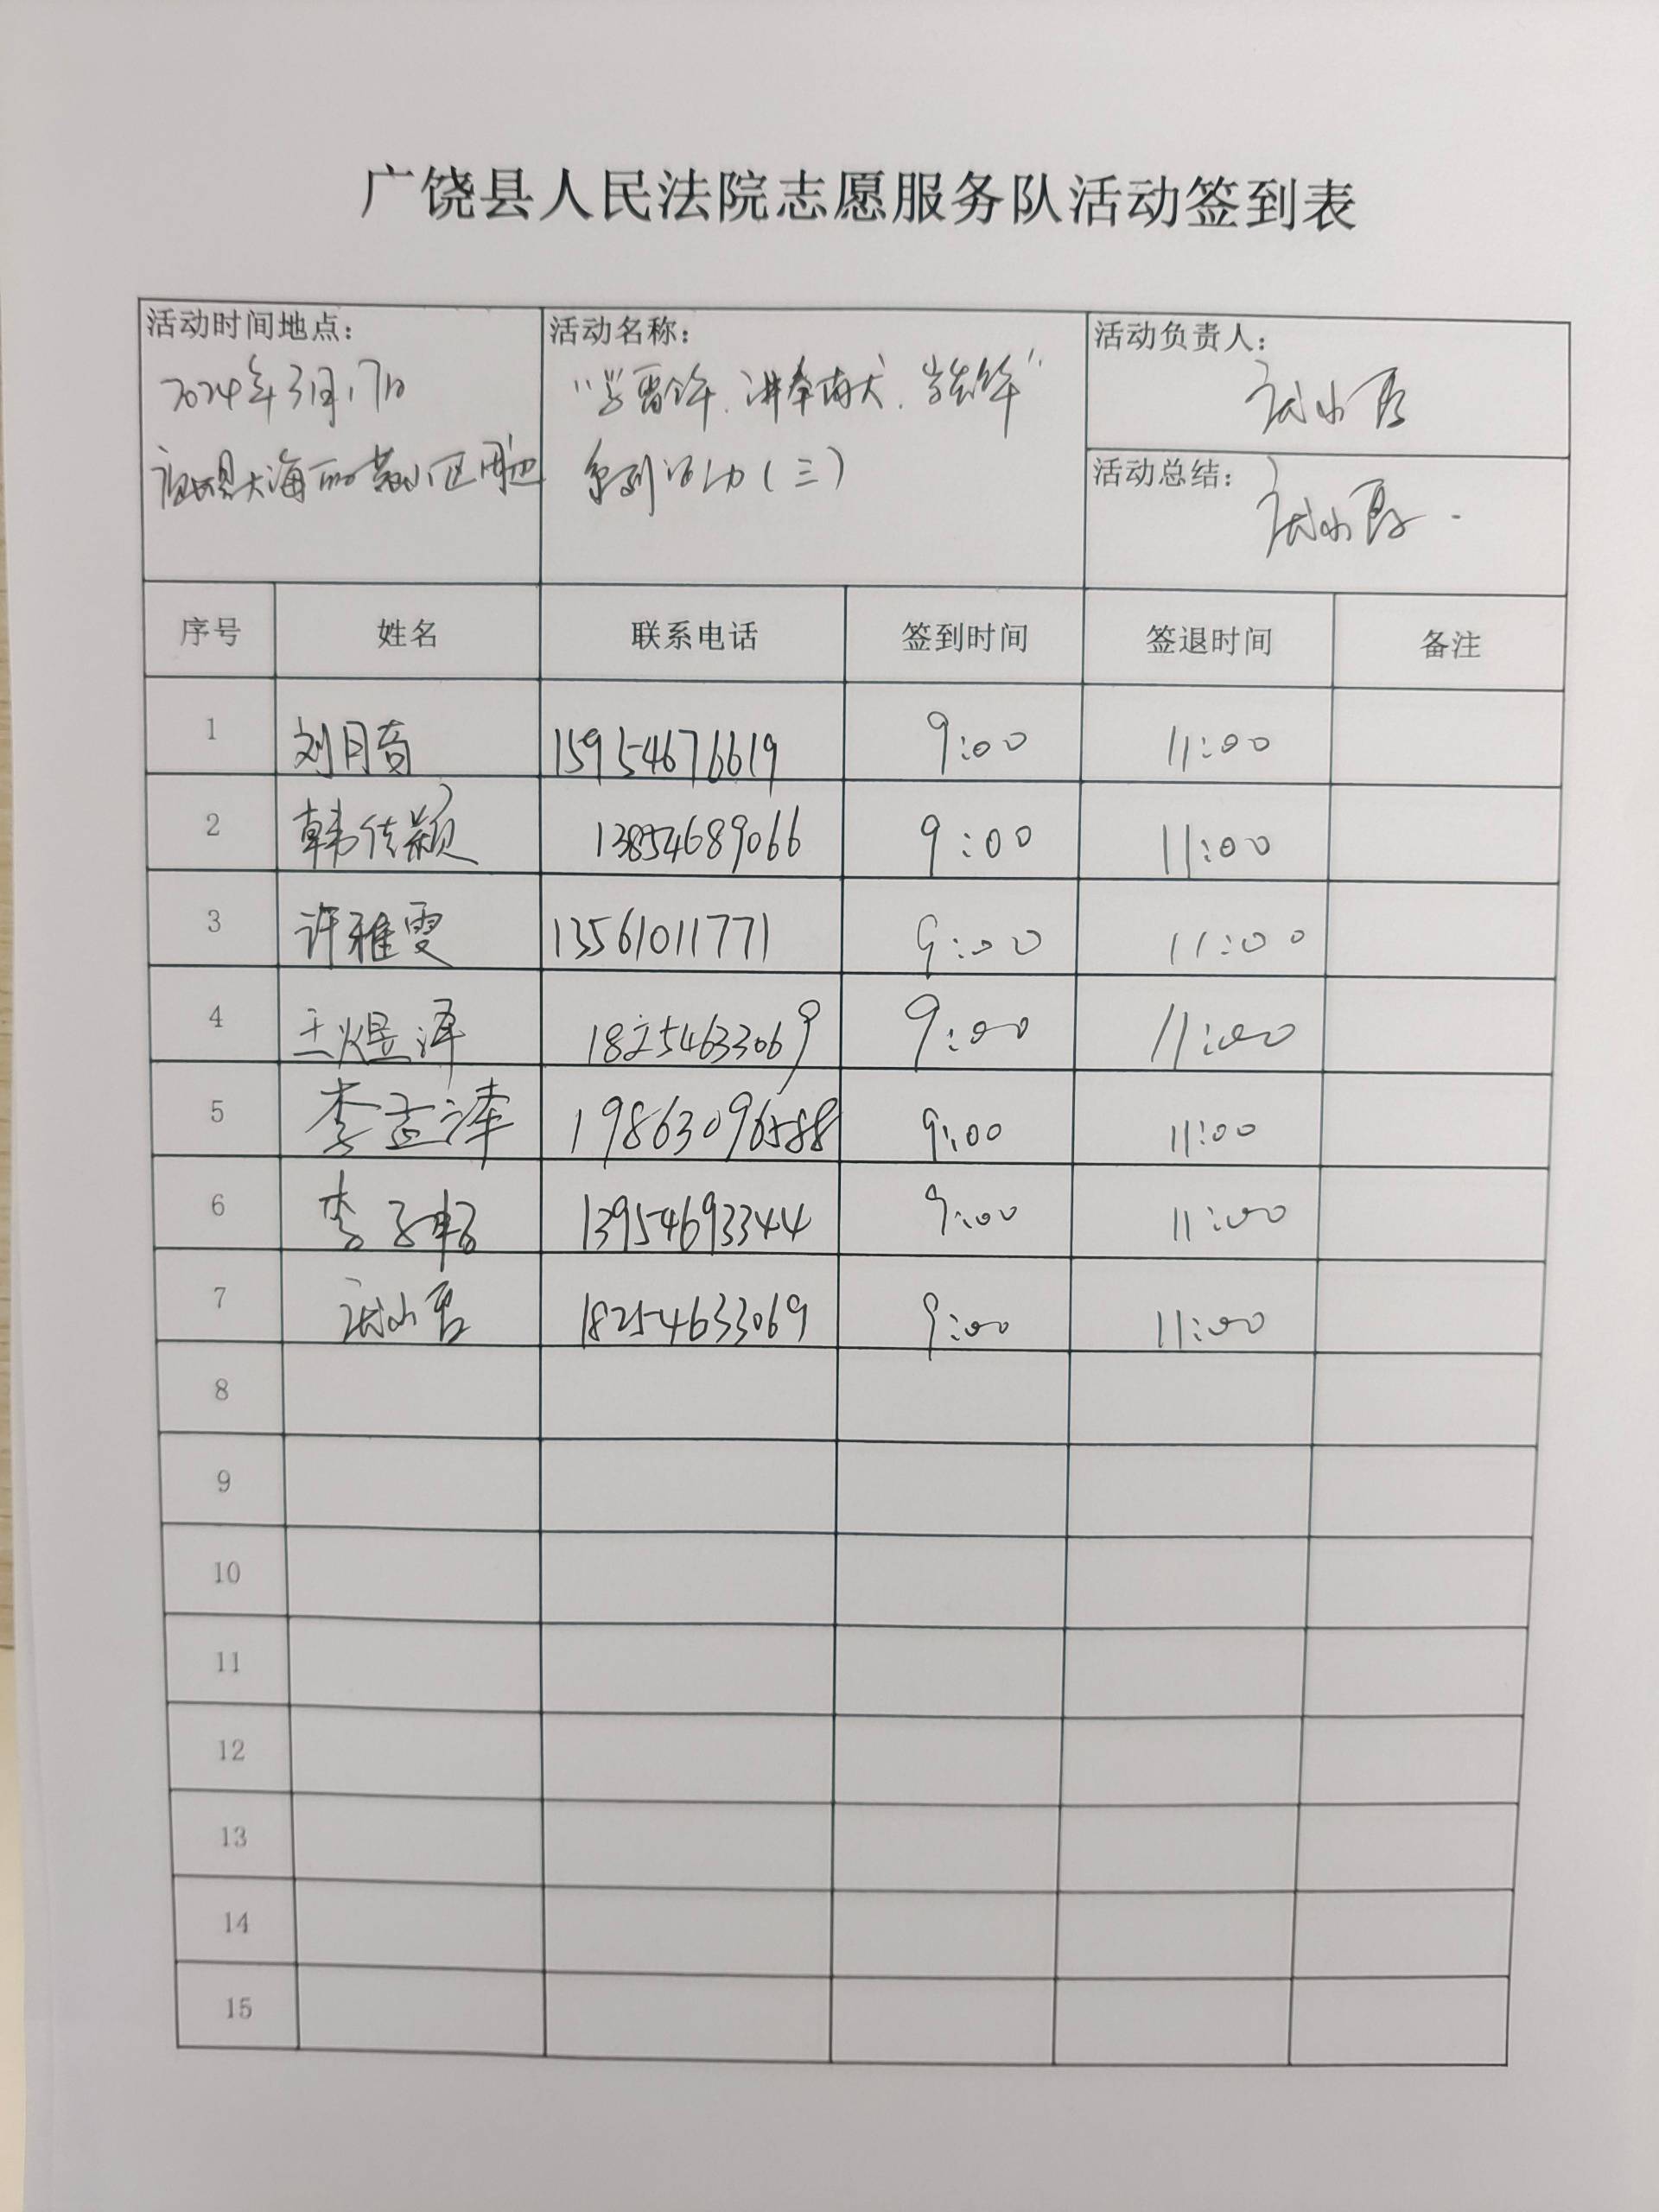 广饶县人民法院志愿服务队活动签到表
活动时间地点：
2024年3月17日
大海 小区周边
活动名称：
"学雷锋、讲奉献、当先锋"
系列活动（三）
活动负责人：
活动总结：
序号 姓名 联系电话 签到时间 签退时间 备注
1 刘月音 15954676619 9:00 11:00
2 韩佳颖 13854689066 9:00 11:00
3 许雅雯 13561011771 9:00 11:00
4 王煜泽 18254633069 9:00 11:00
5 李孟泽 19863096588 9:00 11:00
6 李子韬 13954693344 9:00 11:00
7 18254633069 9:00 11:00
8
9
10
11
12
13
14
15